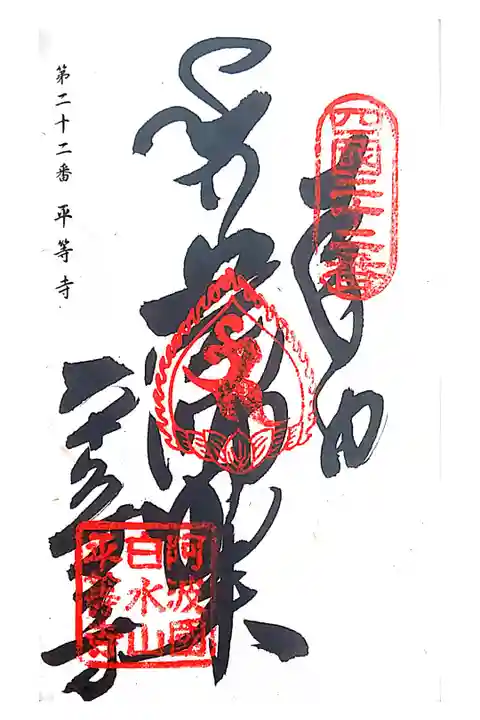 四國二十二番
奉納
薬師如来
平等寺
阿波國
白水山
平等寺
第二十二番 平等寺